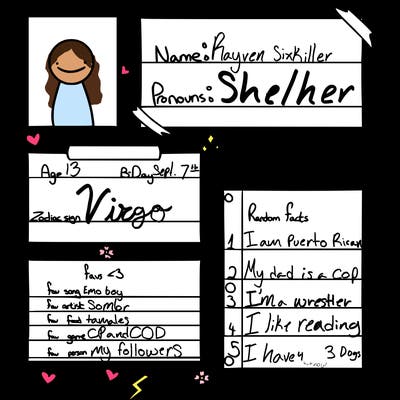 Name: Rayven Sixkiller
Pronouns: She/her
Age 13 B-Day Sept. 7th
Zodiac sign Virgo
favs <3
fav song Emo boy
fav artist Sombr
fav food tamales
fav game CP and COD
fav person my followers
Random facts
1 I am Puerto Rican
2 My dad is a cop
3 I'm a wrestler
4 I like reading
5 I have 3 Dogs